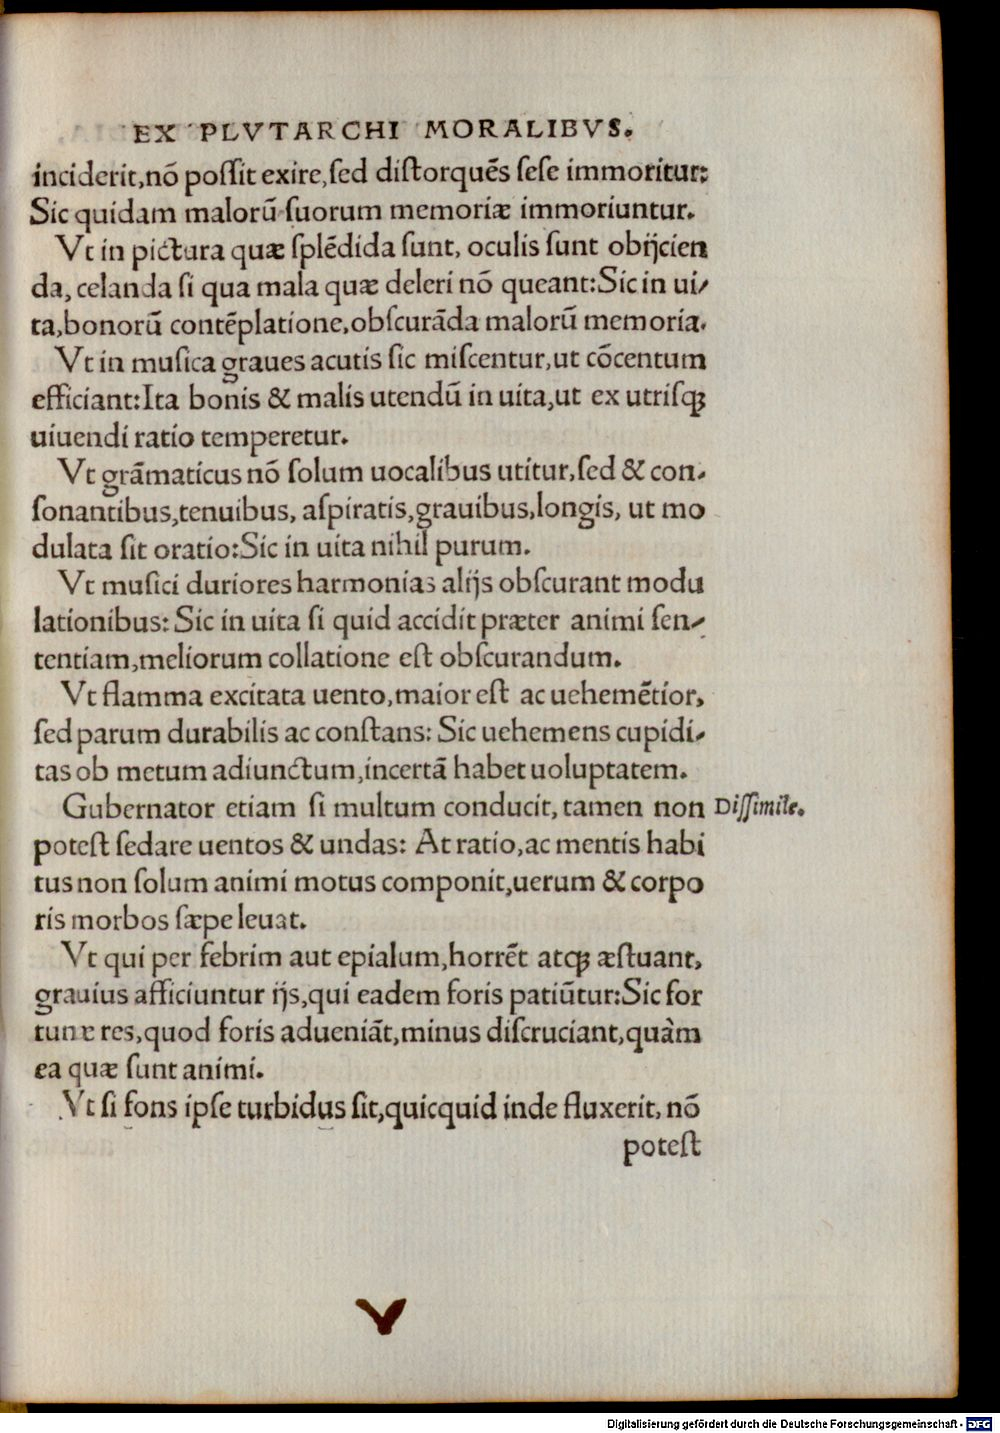 EX PLVTARCHI MORALIBVS.
inciderit,nō poſſit exire,ſed diſtorquēs ſeſe immoritur:
Sic quidam malorū ſuorum memoriæ immoriuntur.
Vt in pictura quæ ſplēdida ſunt, oculis ſunt obijcien
da, celanda ſi qua mala quæ deleri nō queant:Sic in ui-
ta,bonorū contēplatione,obſcurāda malorū memoria.
Vt in muſica graues acutis ſic miſcentur,ut cōcentum
efficiant:Ita bonis & malis utendū in uita,ut ex utriſqꝫ
uiuendi ratio temperetur.
Vt grāmaticus nō ſolum uocalibus utitur,ſed & con-
ſonantibus,tenuibus, aſpiratis,grauibus,longis, ut mo
dulata ſit oratio:Sic in uita nihil purum.
Vt muſici duriores harmonias alijs obſcurant modu
lationibus: Sic in uita ſi quid accidit præter animi ſen-
tentiam,meliorum collatione eſt obſcurandum.
Vt flamma excitata uento,maior eſt ac uehemētior,
ſed parum durabilis ac conſtans: Sic uehemens cupidi-
tas ob metum adiunctum,incertā habet uoluptatem.
Gubernator etiam ſi multum conducit, tamen non Diſſimile.
poteſt ſedare uentos & undas: At ratio,ac mentis habi
tus non ſolum animi motus componit,uerum & corpo
ris morbos ſæpe leuat.
Vt qui per febrim aut epialum,horrēt atqꝫ æſtuant,
grauius afficiuntur ijs,qui eadem foris patiūtur:Sic for
tunæ res,quod foris adueniāt,minus diſcruciant,quàm
ea quæ ſunt animi.
Vt ſi fons ipſe turbidus ſit,quicquid inde fluxerit, nō
poteſt
Digitalisierung gefördert durch die Deutsche Forschungsgemeinschaft - DFG